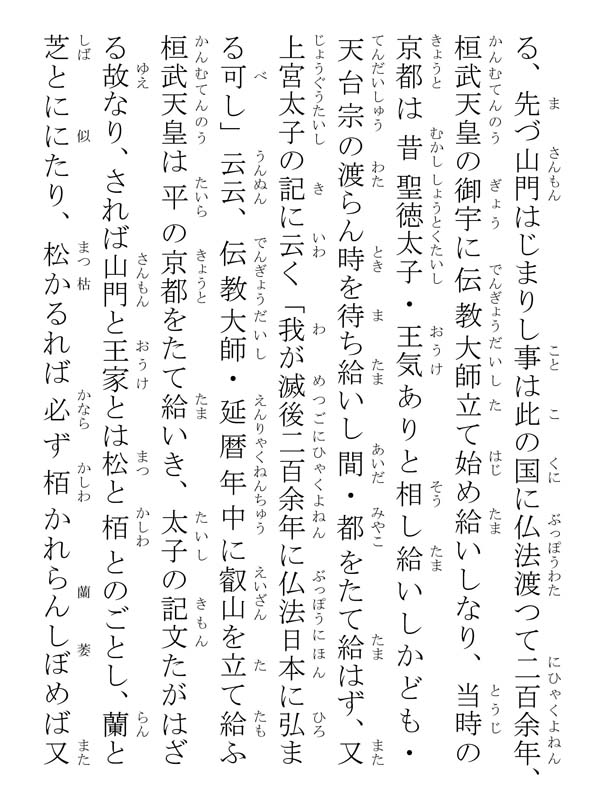 る、先づ山門はじまりし事は此の国に仏法渡つて二百余年、
桓武天皇の御宇に伝教大師立て始め給いしなり、当時の
京都は昔聖徳太子・王気ありと相し給いしかども・
天台宗の渡らん時を待ち給いし間・都をたて給はず、又
上宮太子の記に云く「我が滅後二百余年に仏法日本に弘ま
る可し」云云、伝教大師・延暦年中に叡山を立て給ふ
桓武天皇は平の京都をたて給いき、太子の記文たがはざ
る故なり、されば山門と王家とは松と栢とのごとし、蘭と
芝とににたり、松かるれば必ず栢かれらんしぼめば又